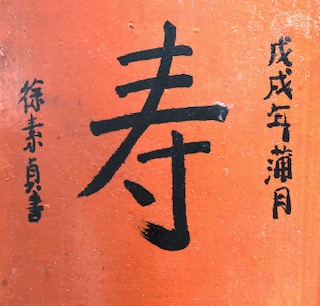 戊戌年蒲月
寿
徐素貞書